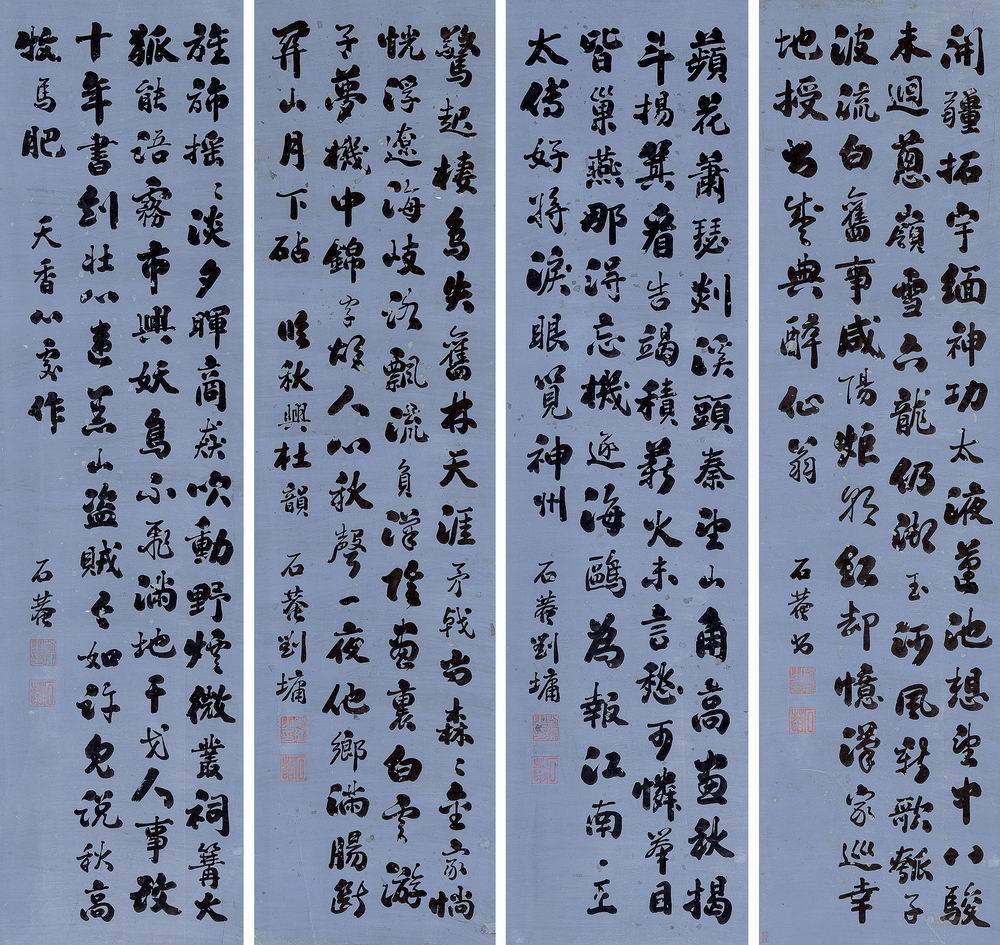 開疆拓宇緬神功太液蓬池想望中八駿
未迴蔥嶺雪六龍仍溯玉河風新歌瓠子
波流白舊事咸陽炬影紅却憶漢家巡幸
地授書盛典醉仙翁 石菴書
蘋花蕭瑟剡溪頭秦望山角高畫秋揭
斗揚箕看告竭積薪火未言愁可憐舉目
皆巢燕那得忘機逐海鷗為報江南王
太傅好將淚眼覓神州 石菴劉墉
驚起棲烏失舊林天涯矛戟尚森〻全家惝
恍浮遼海歧路飄流負漢陰畫裏白雲游
子夢機中錦字故人心秋聲一夜他鄉滿腸斷
關山月下砧 秋興杜韻 石菴劉墉
旌旆搖〻淡夕暉商焱吹動野煙微叢祠篝火
狐能語霧市興妖鳥不飛滿地干戈人事改
十年書劍壯心違黑山盜賊今如許見說秋高
牧馬肥 天香心處作 石菴